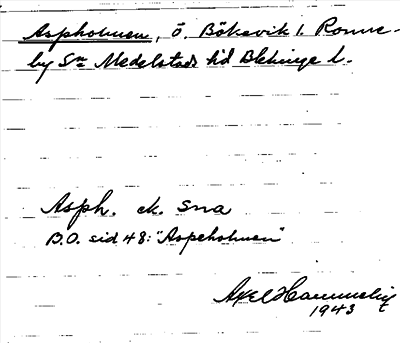 Aspholmen, ö. Bökevik i. Ronne-
by Sn Medelstads h'd Blekinge l.
Asph. ek. sna
B.O. sid 48: "Aspeholmen"
Axel
1943